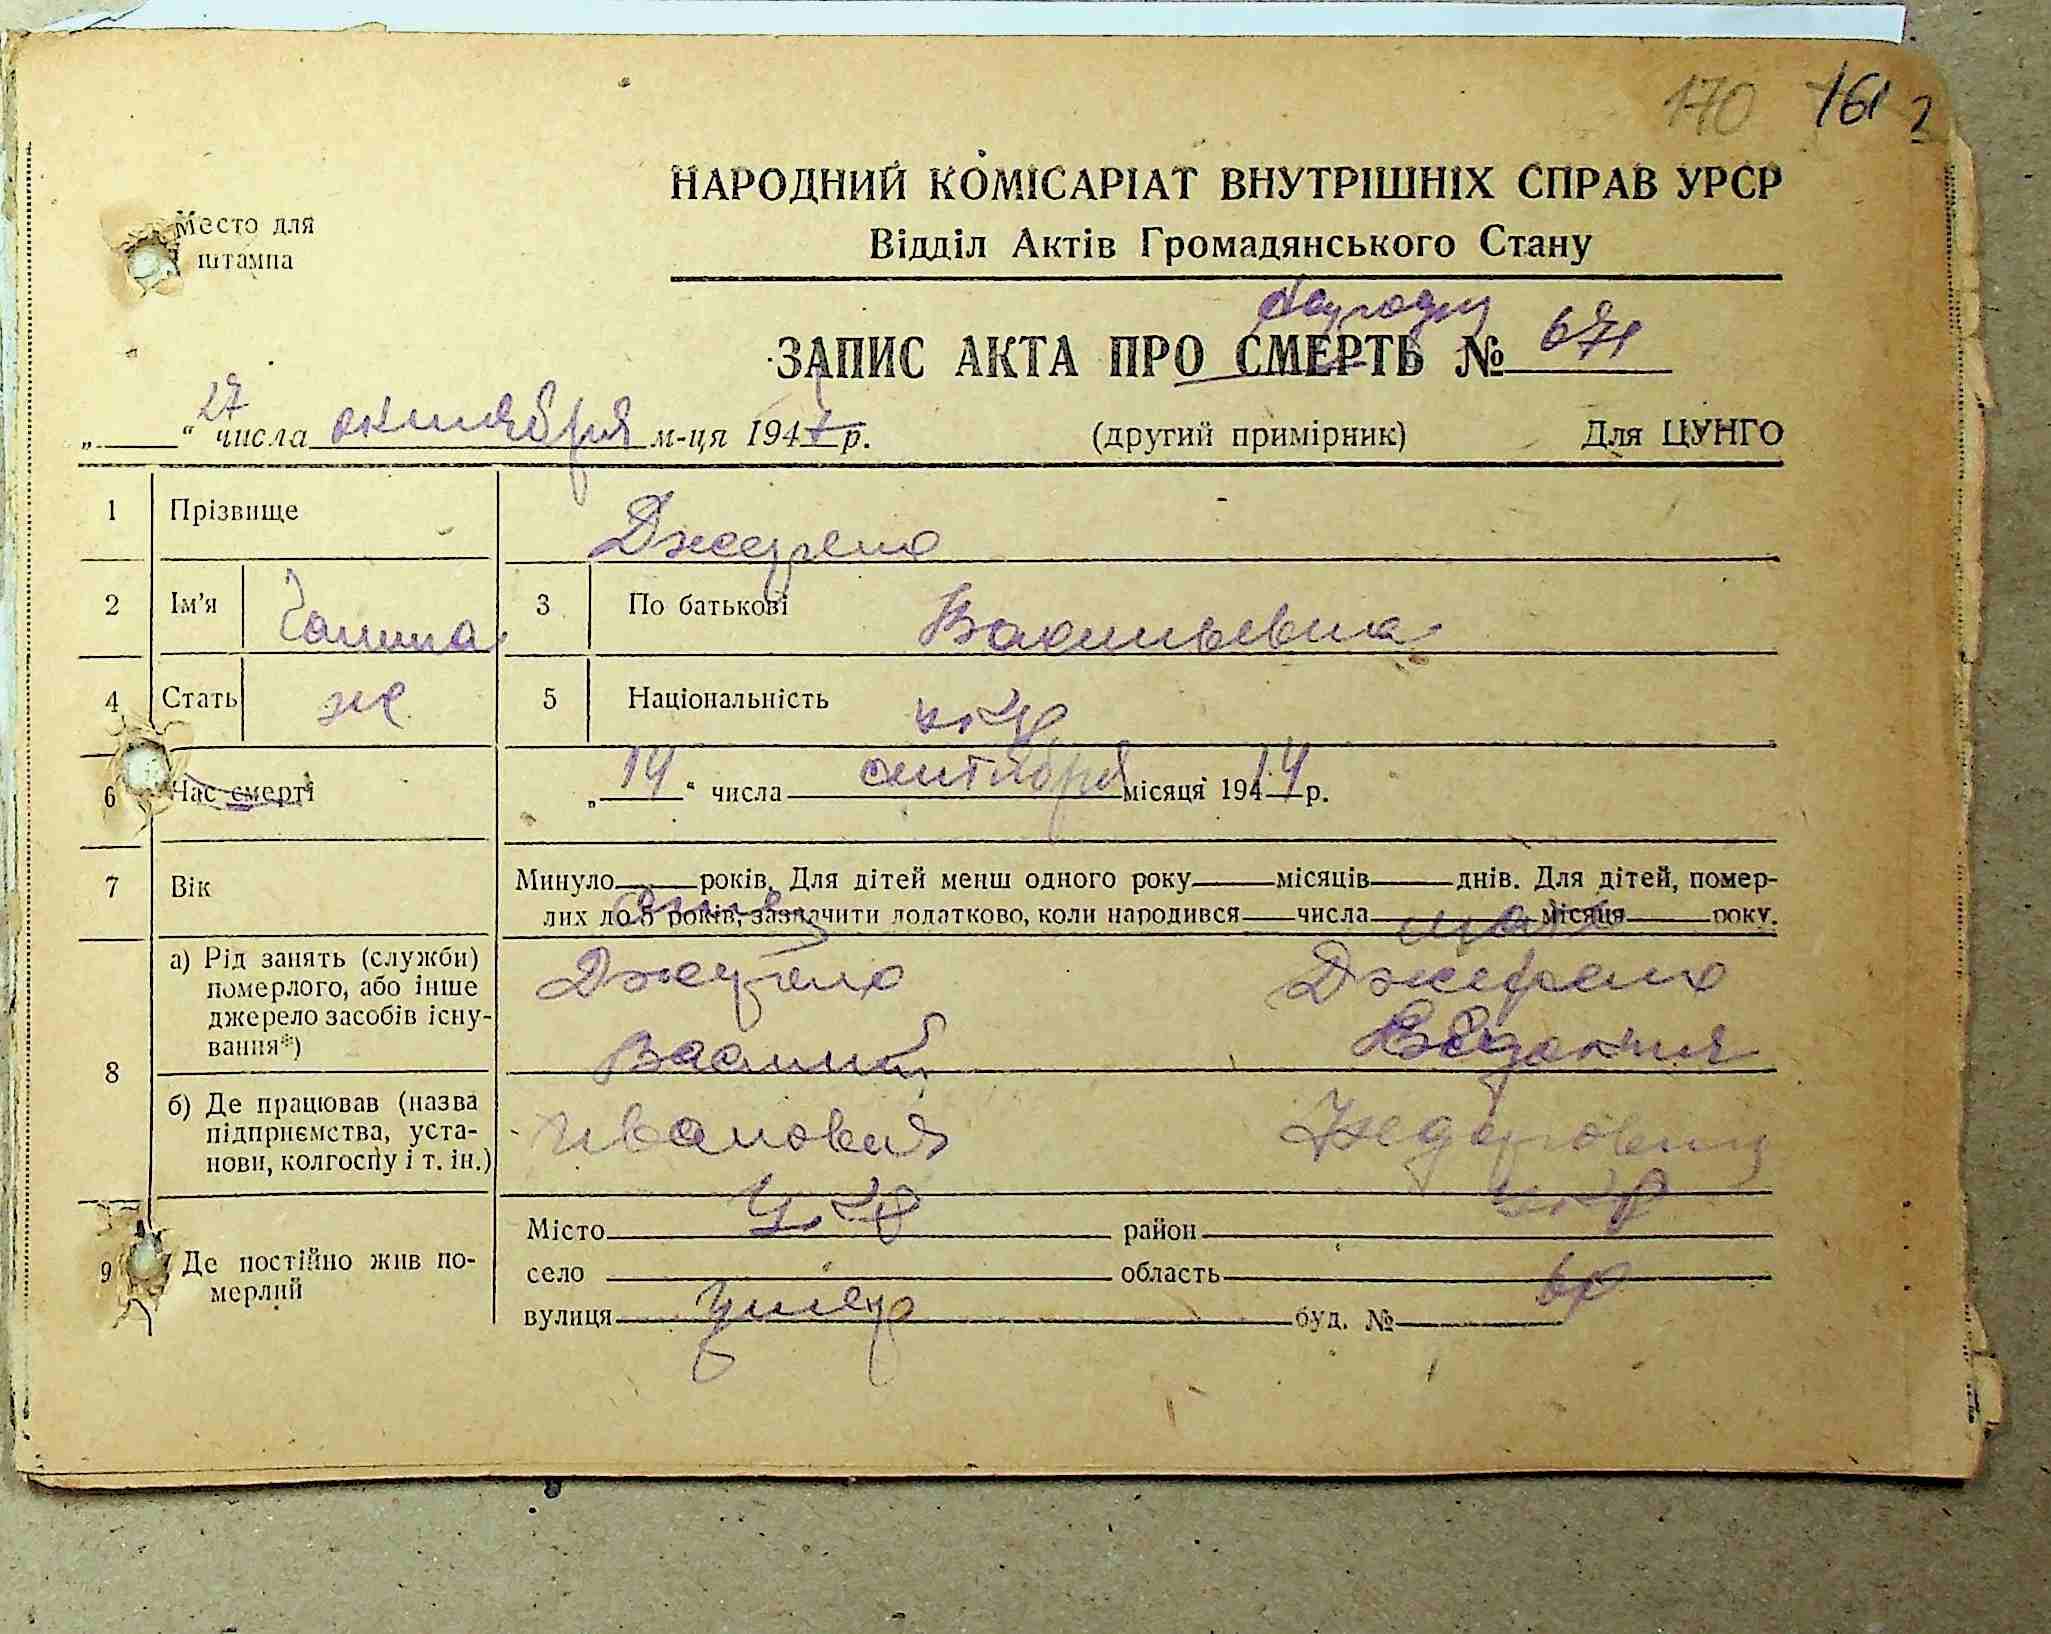 170 161 2
НАРОДНИЙ КОМІСАРІАТ ВНУТРІШНІХ СПРАВ УРСР
Место для
штампа
Відділ Актів Громадянського Стану
ЗАПИС АКТА ПРО СМЕРТЬ № 671
„ “ 27 числа октября м-ця 1947 р. (другий примірник) Для ЦУНГО
1 Прізвище
2 Ім'я Галина 3 По батькові Васильевна
4 Стать ж 5 Національність укр
6 Час смерті „ 14 “ числа сентября місяця 194 14 р.
7 Вік Минуло років. Для дітей менш одного року місяців днів. Для дітей, помер-
лих до 5 років, зазначити додатково, коли народився числа місяця року.
отец мать
а) Рід занять (служби)
померлого, або інше
джерело засобів існу-
вання*)
Василий
8
б) Де працював (назва
підприємства, уста-
нови, колгоспу і т. ін.)
Иванович
укр укр
9 Де постійно жив по-
мерлий
Місто район
село область
вулиця умер буд. №